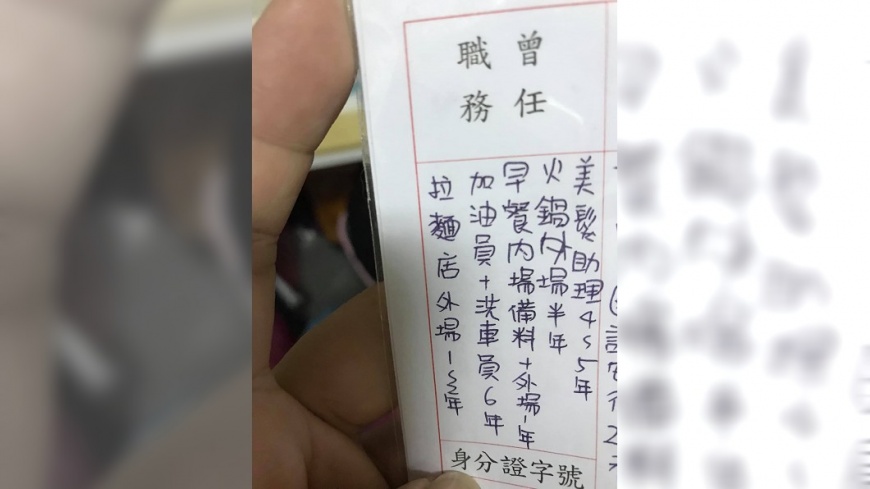 曾任
職務
美髮助理4~5年
火鍋外場半年
早餐內場備料+外場1年
加油員+洗車員6年
拉麵店外場1~2年
身分證字號